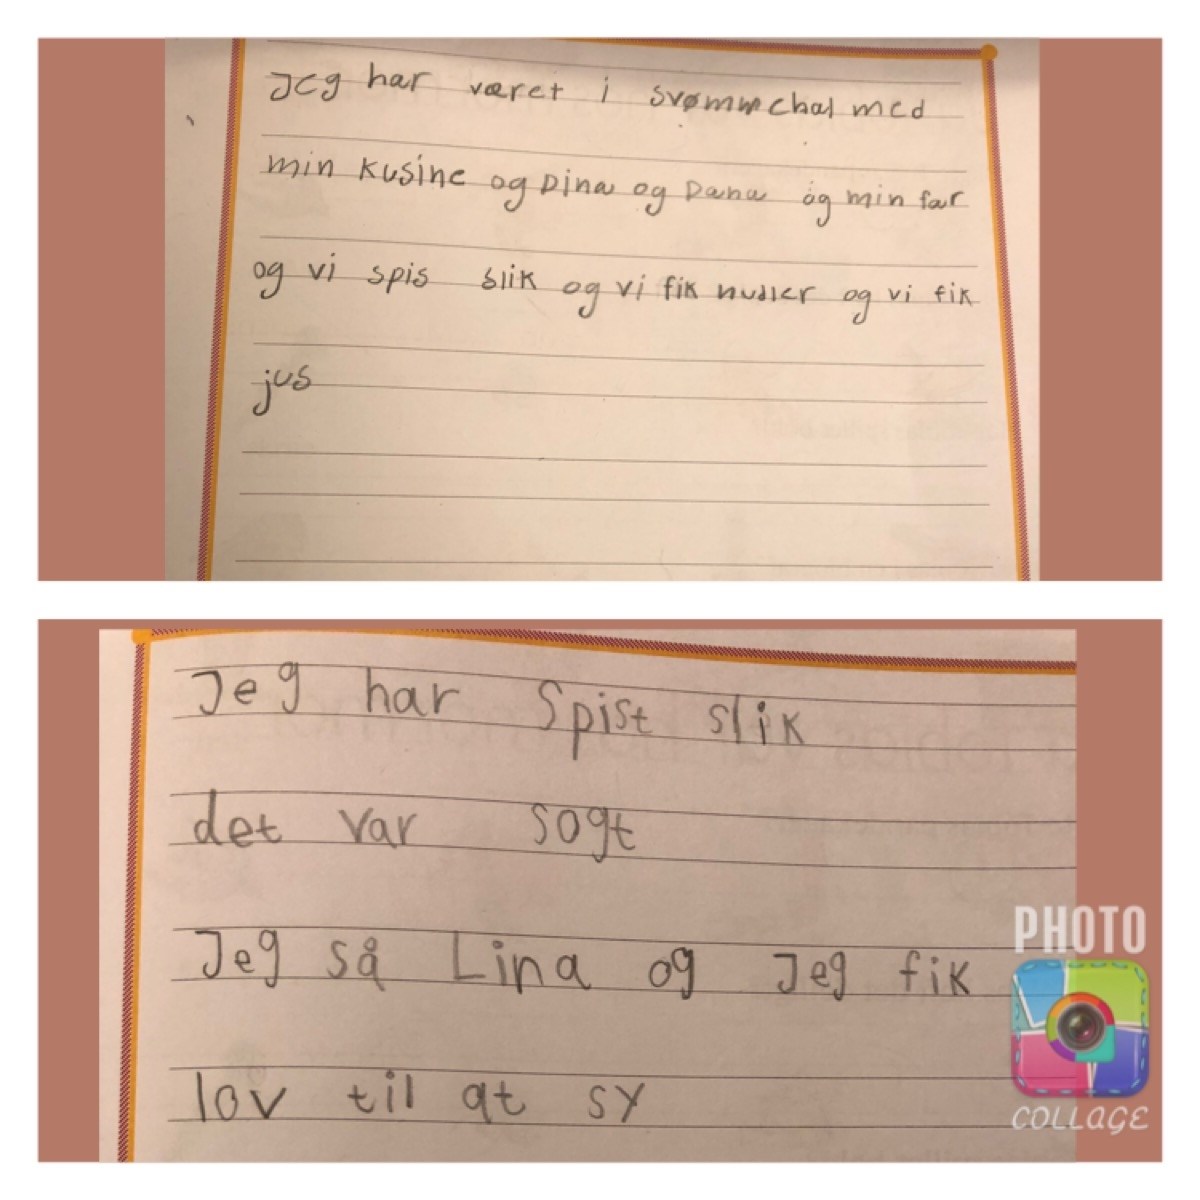 Jeg har været i svømmehal med
min kusine og Dina og Dana og min far
og vi spis slik og vi fik nudler og vi fik
jus
Jeg har Spist slik
det var sogt
Jeg så Lina og Jeg fik
lov til at sy
PHOTO
COLLAGE